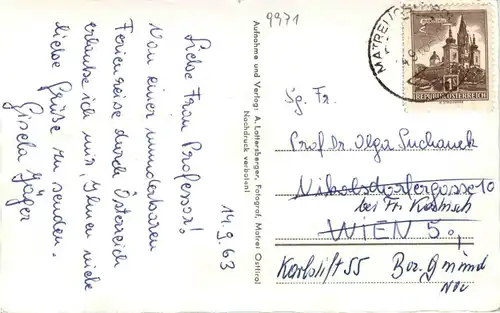 9971
14.9.63
Liebe Frau Professor!
Von einer wunderbaren
Ferienreise durch Österreich
erlaube ich mir, Ihnen viele
liebe Grüße zu senden.
Gisela Jäger
Aufnahme und Verlag: A. Lottersberger, Fotograf, Matrei Osttirol
Nachdruck verboten!
MATREI
REPUBLIK ÖSTERREICH
Sg. Fr.
Prof. Dr. Olga Suchanek
Nikolsdorfergasse 10
bei Fr.
WIEN 5.,
55 Bez. Gmünd
NÖ